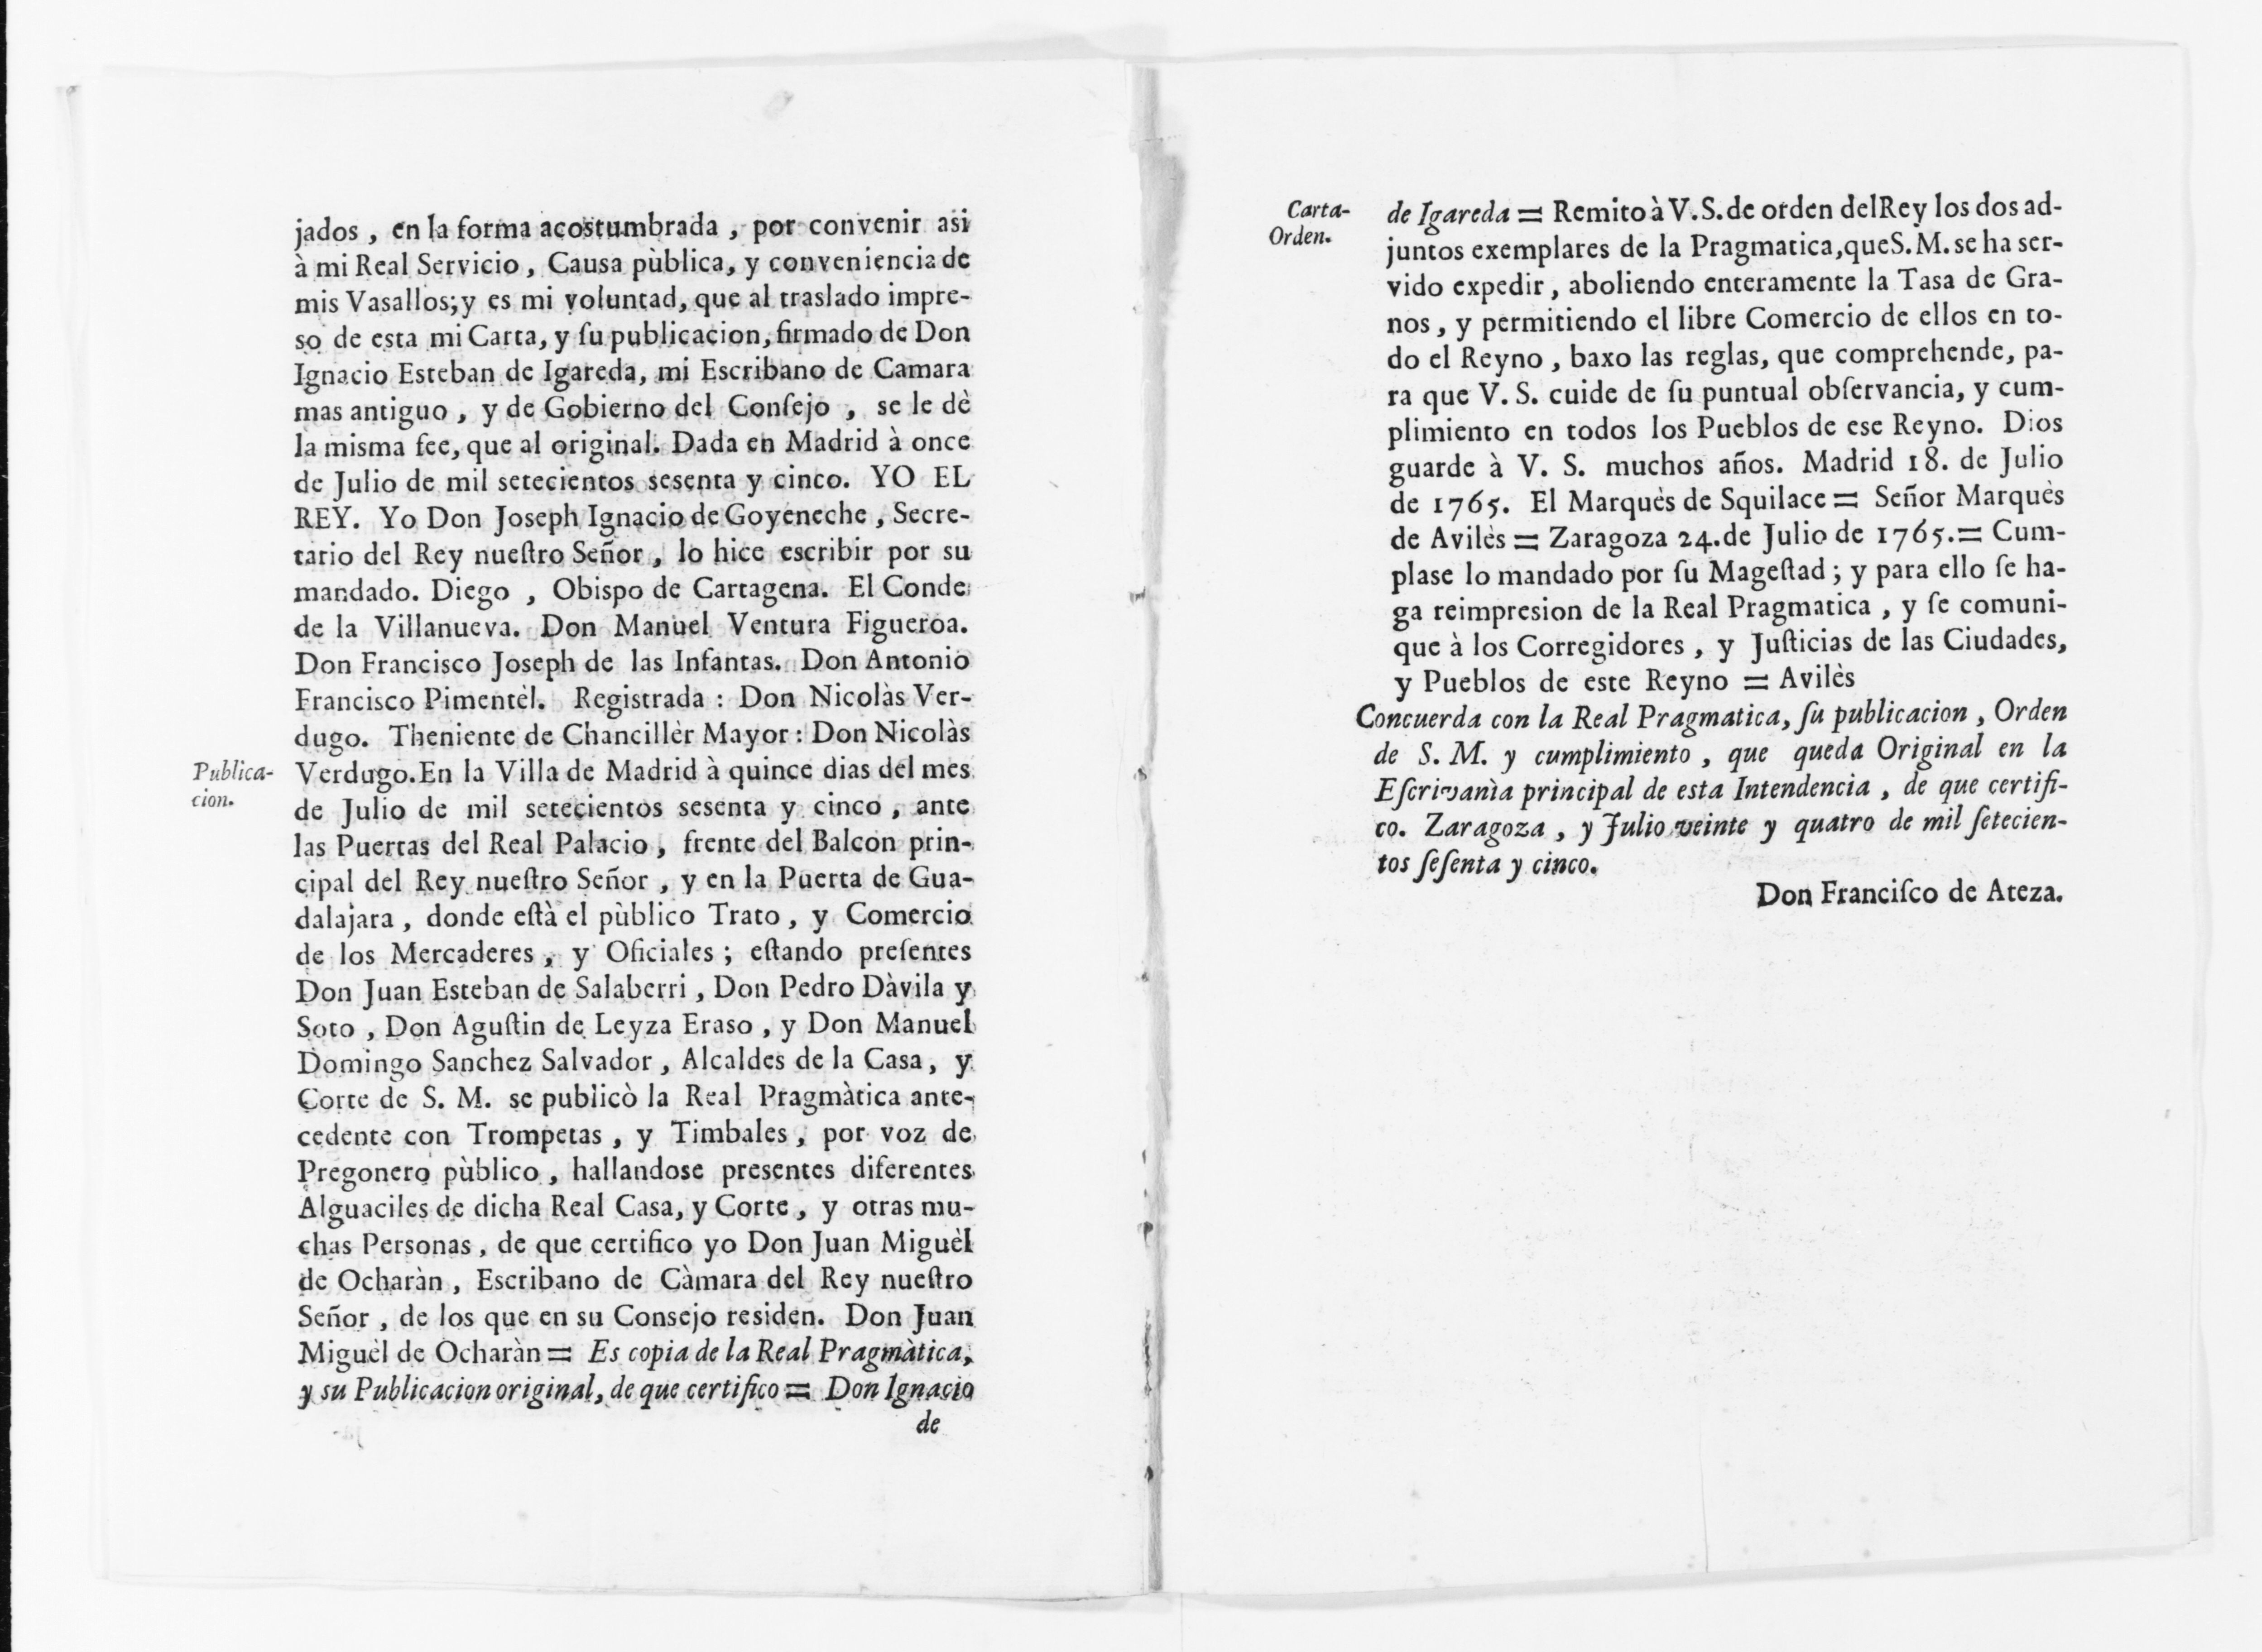 jados , en la forma acostumbrada , por convenir asi
à mi Real Servicio , Causa pùblica, y conveniencia de
mis Vasallos; y es mi voluntad, que al traslado impre-
so de esta mi Carta, y ſu publicacion, firmado de Don
Ignacio Esteban de Igareda, mi Escribano de Camara
mas antiguo , y de Gobierno del Conſejo , se le dè
la misma fee, que al original. Dada en Madrid à once
de Julio de mil setecientos sesenta y cinco. YO EL
REY. Yo Don Joseph Ignacio de Goyeneche , Secre-
tario del Rey nueſtro Señor , lo hice escribir por su
mandado. Diego , Obispo de Cartagena. El Conde
de la Villanueva. Don Manuel Ventura Figueroa.
Don Francisco Joseph de las Infantas. Don Antonio
Francisco Pimentèl. Registrada : Don Nicolàs Ver-
dugo. Theniente de Chancillèr Mayor : Don Nicolàs
Publica-
cion.
Verdugo. En la Villa de Madrid à quince dias del mes
de Julio de mil setecientos sesenta y cinco , ante
las Puertas del Real Palacio , frente del Balcon prin-
cipal del Rey nueſtro Señor , y en la Puerta de Gua-
dalajara , donde eſtà el pùblico Trato , y Comercio
de los Mercaderes , y Oficiales ; eſtando preſentes
Don Juan Esteban de Salaberri , Don Pedro Dàvila y
Soto , Don Aguſtin de Leyza Eraso , y Don Manuel
Domingo Sanchez Salvador , Alcaldes de la Casa , y
Corte de S. M. se publicò la Real Pragmàtica ante-
cedente con Trompetas , y Timbales , por voz de
Pregonero pùblico , hallandose presentes diferentes
Alguaciles de dicha Real Casa, y Corte , y otras mu-
chas Personas , de que certifico yo Don Juan Miguèl
de Ocharàn , Escribano de Càmara del Rey nueſtro
Señor , de los que en su Consejo residen. Don Juan
Miguèl de Ocharàn = Es copia de la Real Pragmàtica,
y su Publicacion original, de que certifico = Don Ignacio
de
Carta-
Orden.
de Igareda = Remito à V. S. de orden del Rey los dos ad-
juntos exemplares de la Pragmatica, que S. M. se ha ser-
vido expedir , aboliendo enteramente la Tasa de Gra-
nos , y permitiendo el libre Comercio de ellos en to-
do el Reyno , baxo las reglas, que comprehende, pa-
ra que V. S. cuide de ſu puntual obſervancia, y cum-
plimiento en todos los Pueblos de ese Reyno. Dios
guarde à V. S. muchos años. Madrid 18. de Julio
de 1765. El Marquès de Squilace = Señor Marquès
de Avilès = Zaragoza 24. de Julio de 1765. = Cum-
plase lo mandado por ſu Mageſtad ; y para ello ſe ha-
ga reimpresion de la Real Pragmatica , y ſe comuni-
que à los Corregidores , y Juſticias de las Ciudades,
y Pueblos de este Reyno = Avilès
Concuerda con la Real Pragmatica, ſu publicacion , Orden
de S. M. y cumplimiento , que queda Original en la
Eſcrivanìa principal de esta Intendencia , de que certifi-
co. Zaragoza , y Julio veinte y quatro de mil ſetecien-
tos ſeſenta y cinco.
Don Franciſco de Ateza.